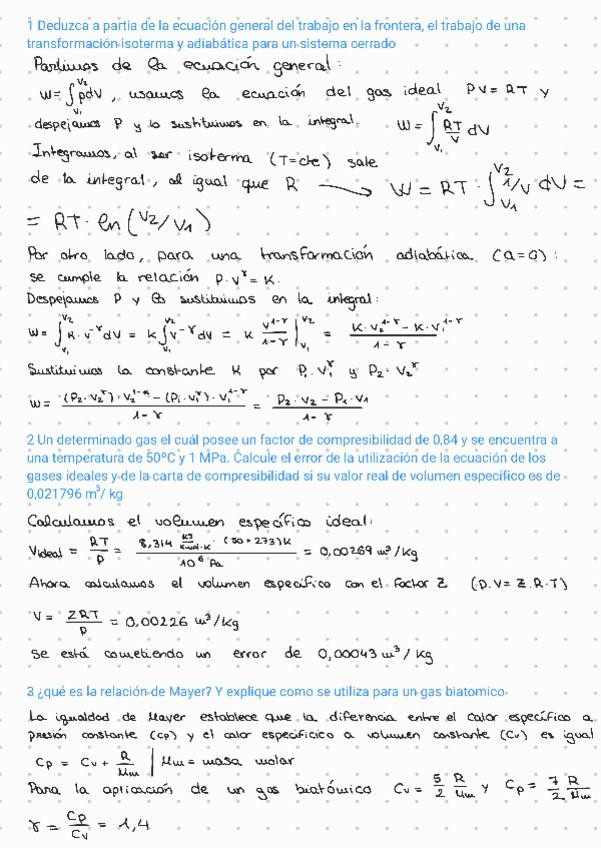 1 Deduzca a partia de la ecuación general del trabajo en la frontera, el trabajo de una
transformación isoterma y adiabática para un sistema cerrado
Partimos de la ecuación general:
W = ∫_{V₁}^{V₂} p dV , usamos la ecuación del gas ideal PV = RT y
despejamos P y lo sustituimos en la integral. W = ∫_{V₁}^{V₂} RT/V dV
Integramos, al ser isoterma (T=cte) sale
de la integral, al igual que R → W = RT · ∫_{V₁}^{V₂} 1/V dV =
= RT · ln(V₂/V₁)
Por otro lado, para una transformación adiabática (Q=0):
se cumple la relación P·V^γ = K.
Despejamos P y la sustituimos en la integral:
W = ∫_{V₁}^{V₂} K·V^{-γ} dV = K ∫_{V₁}^{V₂} V^{-γ} dV = K V^{1-γ}/(1-γ) |_{V₁}^{V₂} = (K·V₂^{1-γ} - K·V₁^{1-γ})/(1-γ)
Sustituimos la constante K por P₁·V₁^γ y P₂·V₂^γ
W = ((P₂·V₂^γ)·V₂^{1-γ} - (P₁·V₁^γ)·V₁^{1-γ})/(1-γ) = (P₂·V₂ - P₁·V₁)/(1-γ)
2 Un determinado gas el cuál posee un factor de compresibilidad de 0,84 y se encuentra a
una temperatura de 50ºC y 1 MPa. Calcule el error de la utilización de la ecuación de los
gases ideales y de la carta de compresibilidad si su valor real de volumen específico es de
0,021796 m³/ kg
Calculamos el volumen específico ideal:
Videal = RT/P = (8,314 KJ/Kmol·K · (50+273)K)/(10⁶ Pa) = 0,00269 m³/kg
Ahora calculamos el volumen específico con el factor Z (P.V= Z.R.T)
V = ZRT/P = 0,00226 m³/kg
Se está cometiendo un error de 0,00043 m³/kg
3 ¿qué es la relación de Mayer? Y explique como se utiliza para un gas biatomico
La igualdad de Mayer establece que la diferencia entre el calor específico a
presión constante (cp) y el calor especificico a volumen constante (Cv) es igual
Cp = Cv + R/Mm | Mm = masa molar
Para la aplicación de un gas biatómico Cv = 5/2 R/Mm y Cp = 7/2 R/Mm
γ = Cp/Cv = 1,4